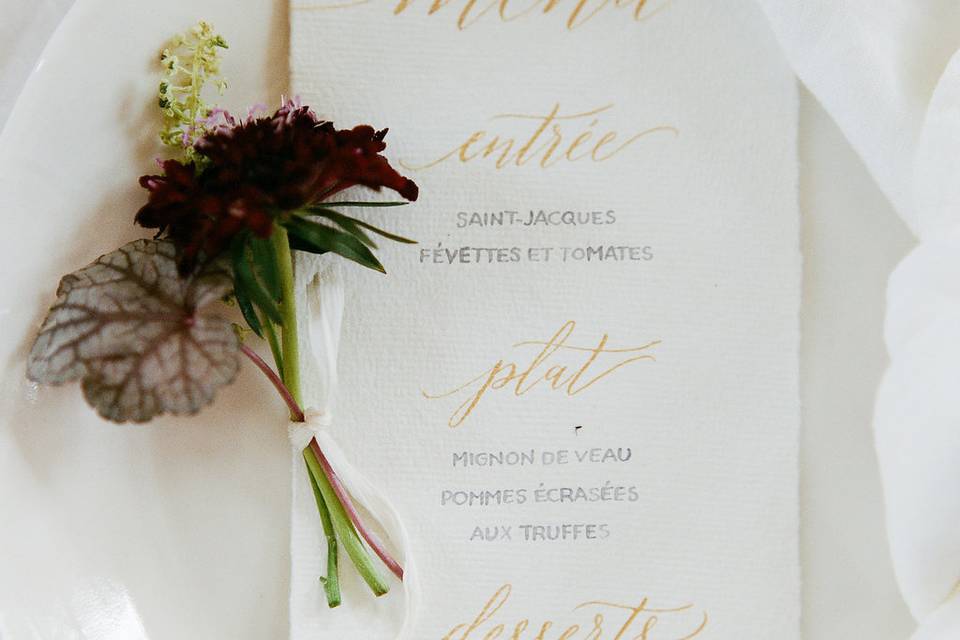 menu
entrée
SAINT-JACQUES
FÉVETTES ET TOMATES
plat
MIGNON DE VEAU
POMMES ÉCRASÉES
AUX TRUFFES
desserts